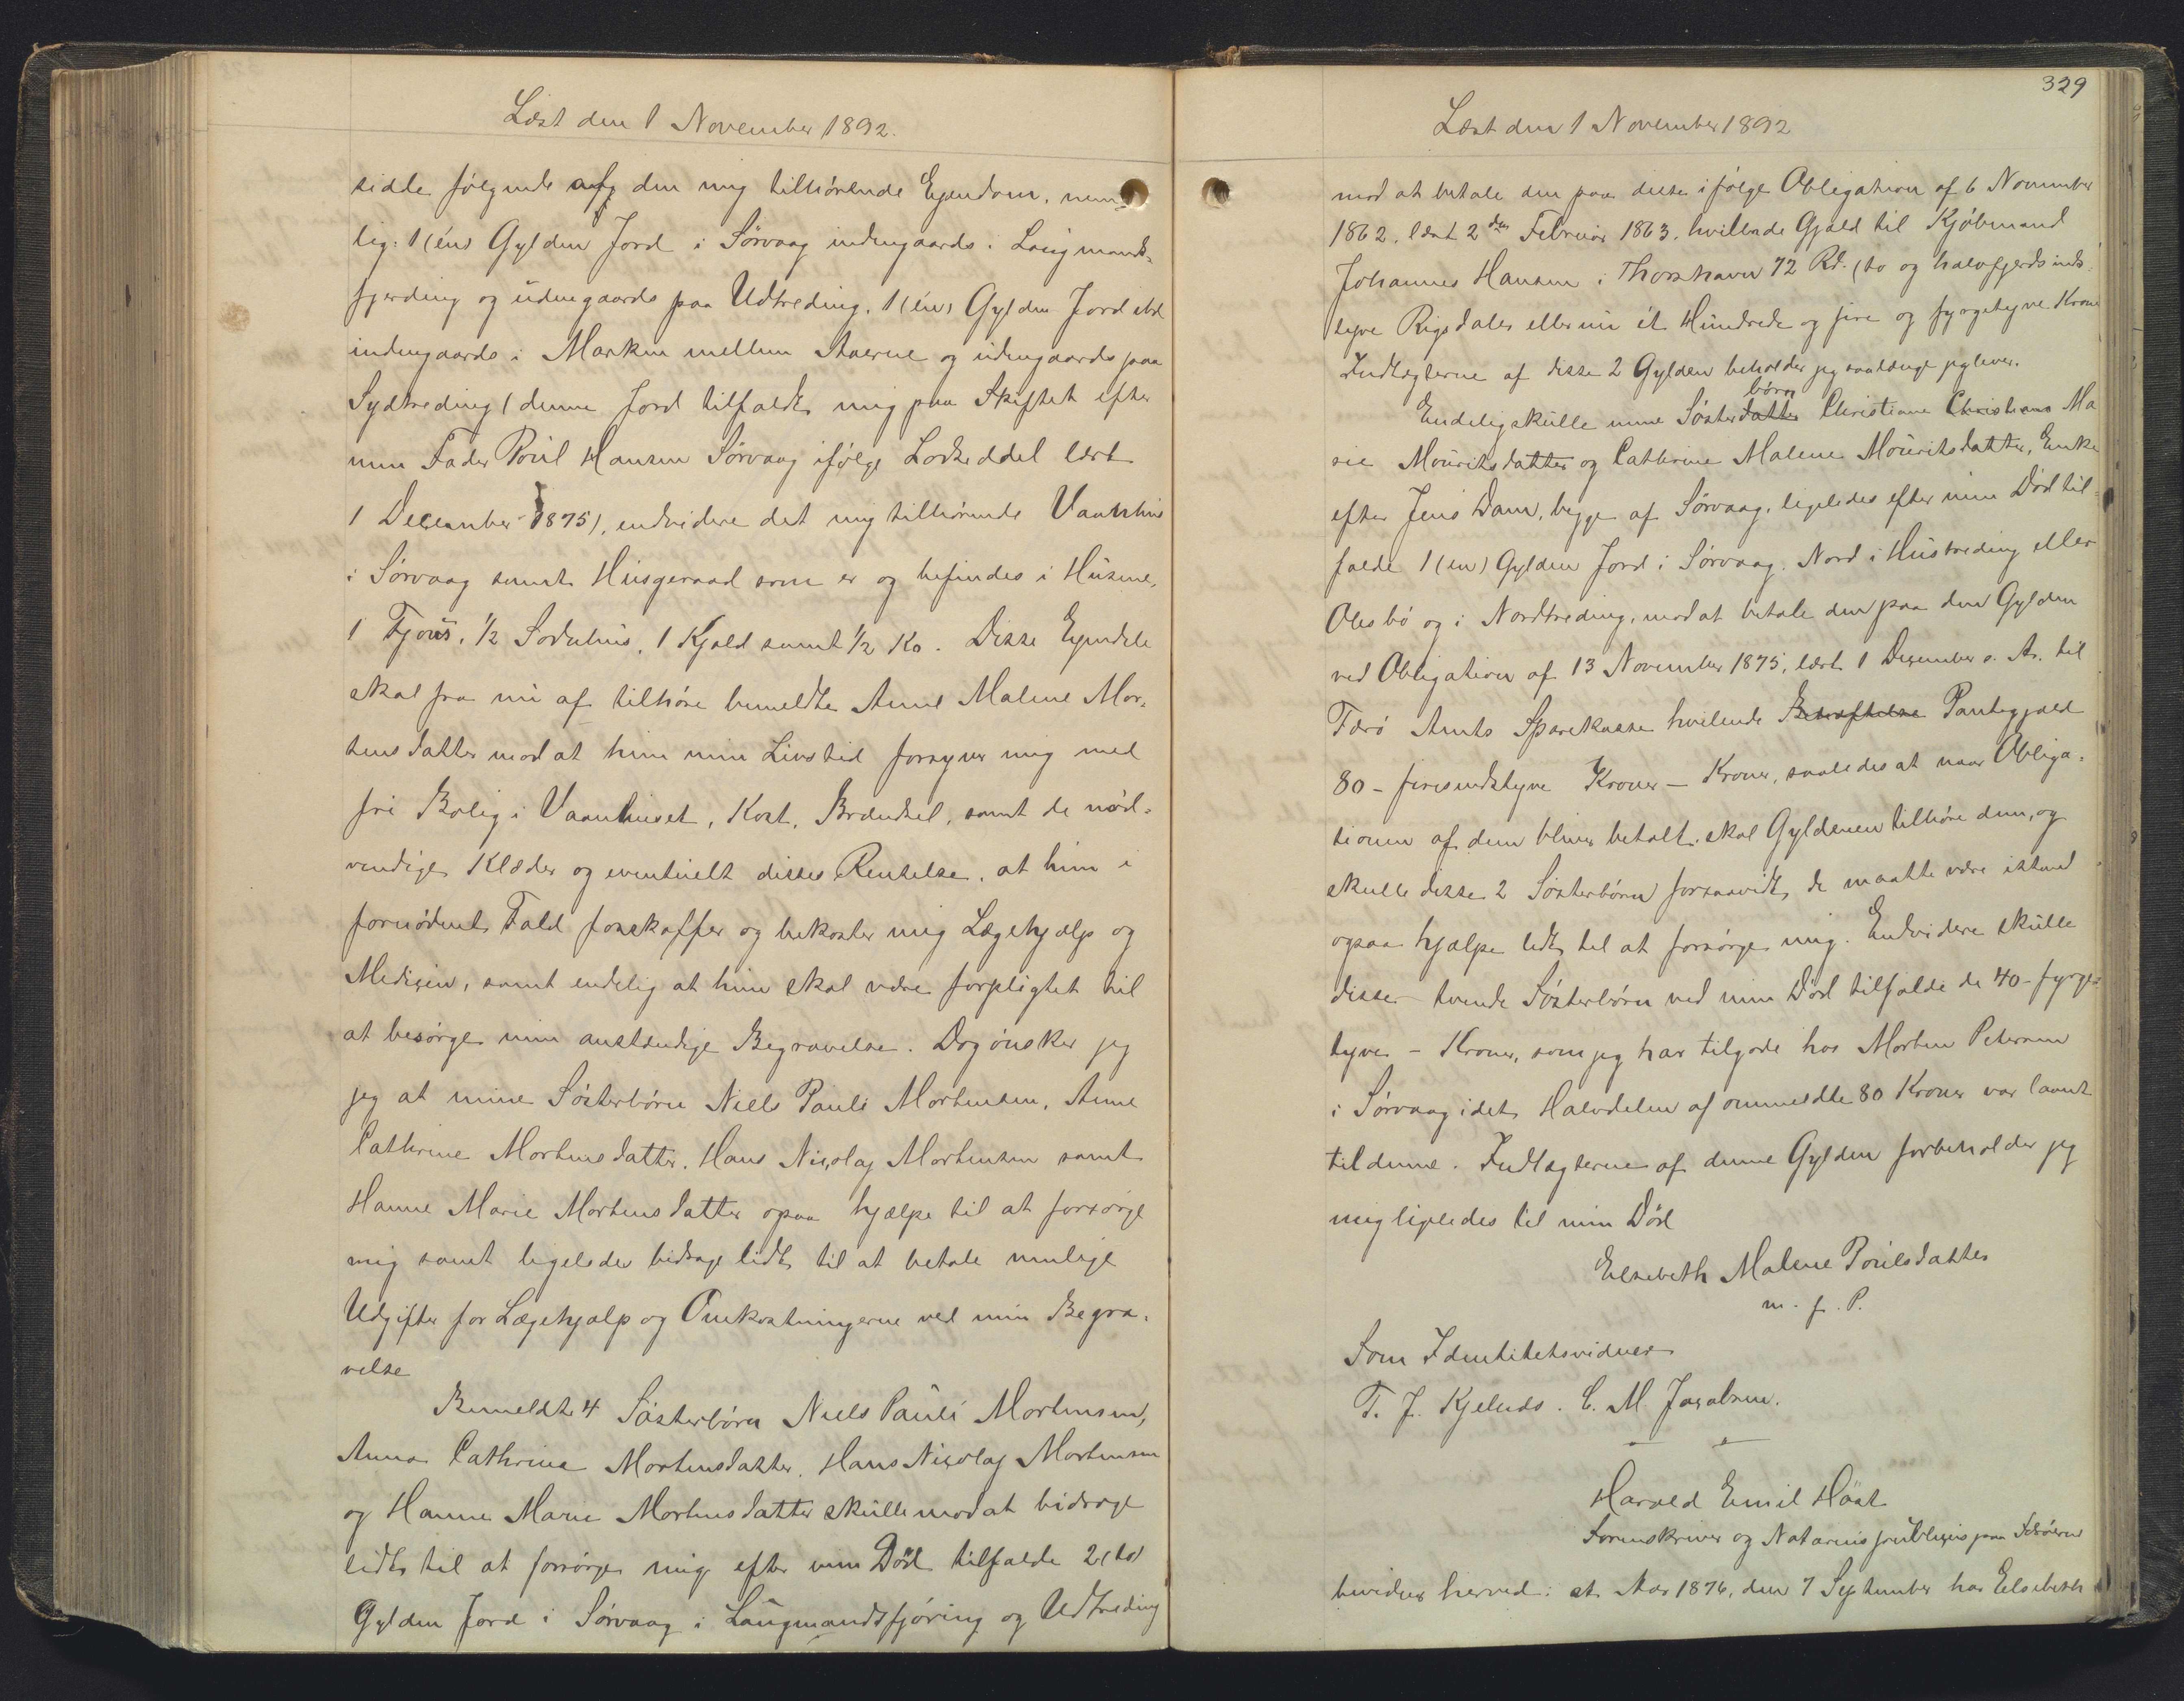 Læst den 1 November 1892.
sidde følgende af den mig tilhørende Ejendom, nem-
lig: 1 (én) Gylden Jord i Sørvaag indengaards i Laugmands-
fjerding og udengaards paa Udtreding, 1 (én) Gylden Jord ibd
indengaards i Marken mellem Aaerne og udengaards paa
Sydtreding (denne Jord tilfaldt mig paa Skiftet efter
min Fader Poul Hansen Sørvaag ifølge Lodseddel læst
1 December 1875), endvidere det mig tilhørende Vaanhus
i Sørvaag samt Husgeraad som er og befindes i Husene,
1 Fjøus, 1/2 Soduhus, 1 Kjald samt 1/2 Ko. Disse Ejendele
skal fra nu af tilhøre bemeldte Anne Malene Mor-
tensdatter mod at hun min Livstid forsyner mig med
fri Bolig i Vaanhuset, Kost, Brændsel, samt de nød-
vendige Klæder og eventuelt disses Renselse, at hun i
fornødent Fald forskaffer og bekoster mig Lægehjælp og
Medicin, samt endelig at hun skal være forpligtet til
at besørge min anstændige Begravelse. Dog ønsker jeg
jeg at mine Søsterbørn Niels Pauli Mortensen, Anne
Cathrine Mortensdatter, Hans Nicolaj Mortensen samt
Hanne Marie Mortensdatter ogsaa hjælpe til at forsørge
mig samt ligeledes bidrage lidt til at betale mulige
Udgifter for Lægehjælp og Omkostningerne ved min Begra-
velse
Bemeldte 4 Søsterbørn Niels Pauli Mortensen,
Anna Cathrine Mortensdatter, Hans Nicolaj Mortensen
og Hanne Marie Mortensdatter skulle mod at bidrage
lidt til at forsørge mig efter min Død tilfalde 2 (to)
Gylden Jord i Sørvaag i Laugmandsfjøring og Udtreding
329
Læst den 1 November 1892
mod at betale den paa disse ifølge Obligation af 6 November
1862, læst 2den Februar 1863, hvilende Gjæld til Kjøbmand
Johannes Hansen i Thorshavn 72 Rd. (to og halvfjerdsinds-
tyve Rigsdaler eller nu ét Hundrede og fire og fyrgetyve Kroner
Indtægterne af disse 2 Gylden beholder jeg saalænge jeg lever.
børn
Endelig skulle mine Søsterdatter Christiane Christiane Ma
rie Mouritsdatter og Cathrine Malene Mouritsdatter, Enke
efter Jens Dam, begge af Sørvaag, ligeledes efter min Død til-
falde 1 (en) Gylden Jord i Sørvaag, Nord i Hustreding eller
Olesbø og i Nordtreding, mod at betale den paa den Gylden
ved Obligation af 13 November 1875, læst 1 December s. A. til
Færø Amts Sparekasse hvilende Bekræftelse Pantegjæld
80 - firesindstyve Kroner - Kroner, saaledes at naar Obliga-
tionen af dem bliver betalt, skal Gyldenen tilhøre dem, og
skulle disse 2 Søsterbørn forsaavidt de maatte være istand
ogsaa hjælpe lidt til at forsørge mig. Endvidere skulle
disse tvende Søsterbørn ved min Død tilfalde de 40 - fyrge-
tyve - Kroner, som jeg har tilgode hos Morten Petersen
i Sørvaag idet Halvdelen af ommeldte 80 Kroner var laant
til denne. Indtægterne af denne Gylden forbeholder jeg
mig ligeledes til min Død
Elsebeth Malene Poulsdatter
m. f. P.
Som Identitetsvidner
T. J. Kjelnæs. C. M. Jacobsen.
Harald Emil Høst
Sorenskriver og Notarius publicus paa Færøerne
bevidner herved: at Aar 1876, den 7 September har Elsebeth